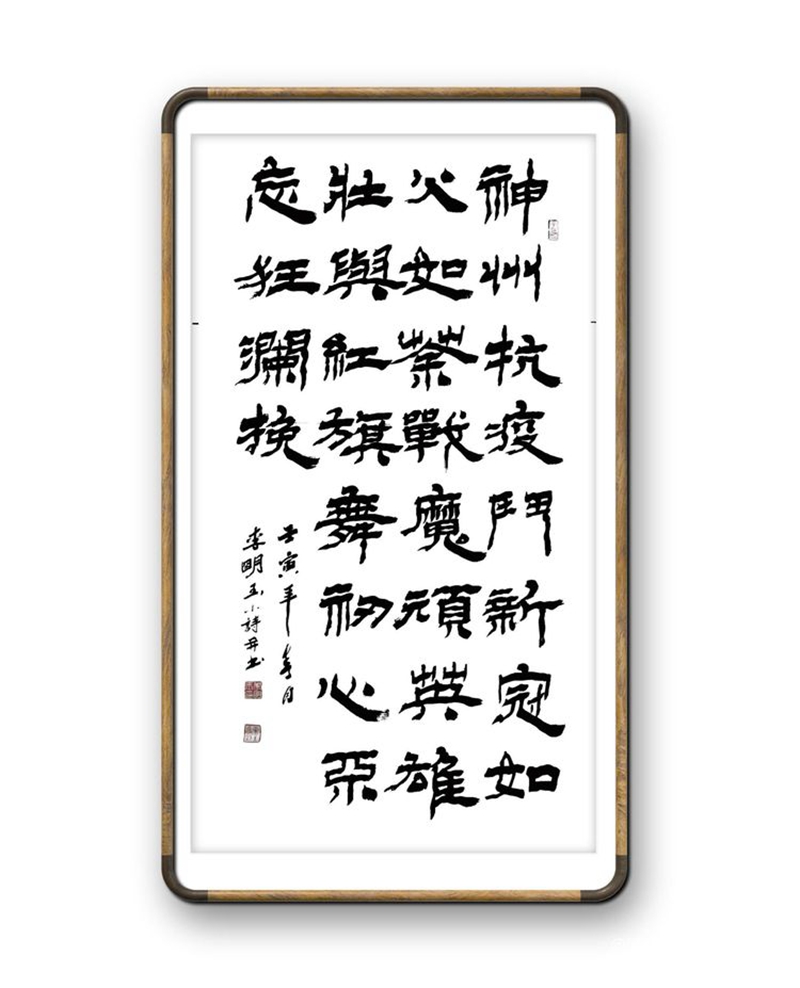 神州抗疫鬥新冠如
火如荼戰魔頑英雄
壯與紅旗舞初心不
忘狂瀾挽
壬寅年春月
李明玉小詩并書